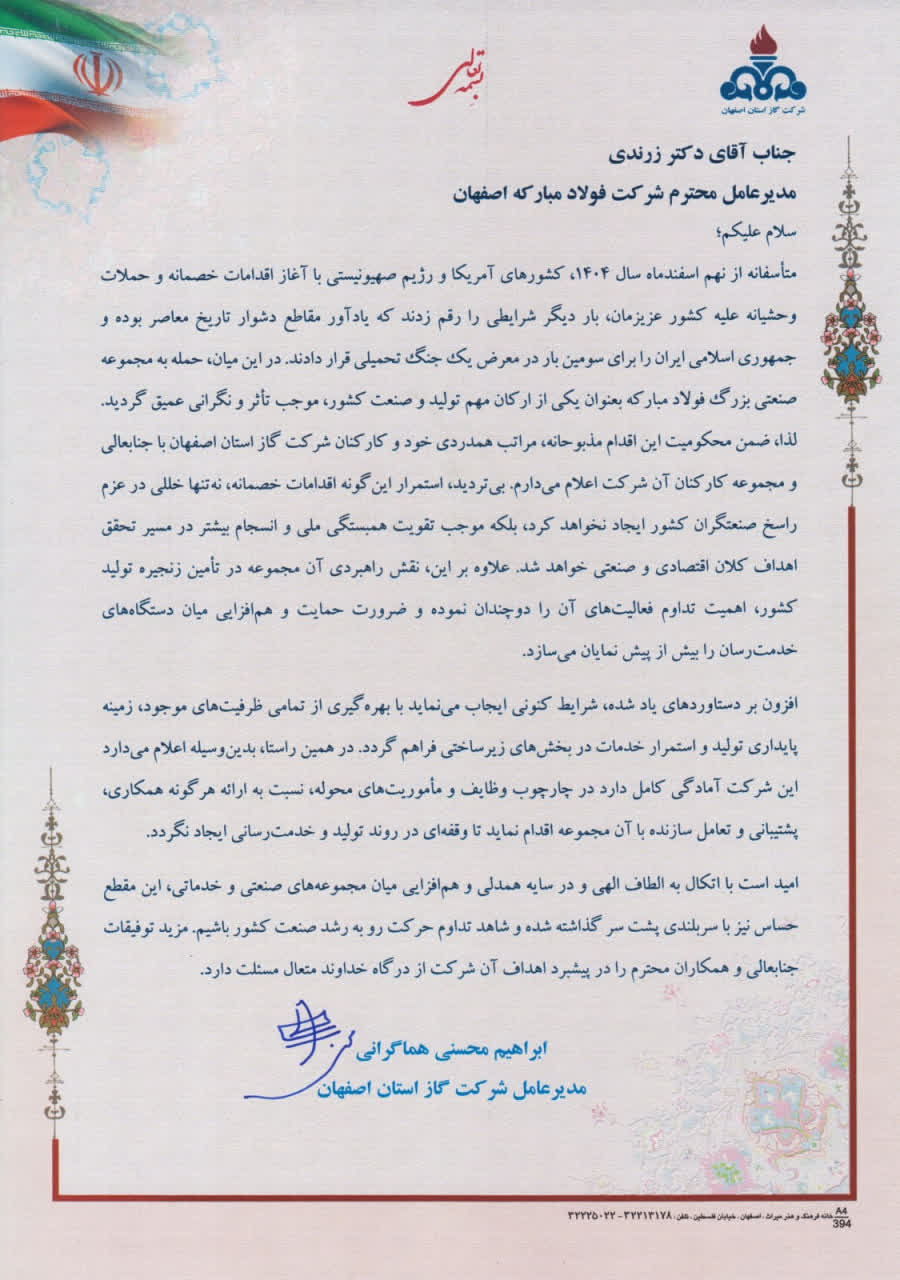 بسمه تعالی
شرکت گاز استان اصفهان
جناب آقای دکتر زرندی
مدیرعامل محترم شرکت فولاد مبارکه اصفهان
سلام علیکم؛
متأسفانه از نهم اسفندماه سال ۱۴۰۴، کشورهای آمریکا و رژیم صهیونیستی با آغاز اقدامات خصمانه و حملات
وحشیانه علیه کشور عزیزمان، بار دیگر شرایطی را رقم زدند که یادآور مقاطع دشوار تاریخ معاصر بوده و
جمهوری اسلامی ایران را برای سومین بار در معرض یک جنگ تحمیلی قرار دادند. در این میان، حمله به مجموعه
صنعتی بزرگ فولاد مبارکه بعنوان یکی از ارکان مهم تولید و صنعت کشور، موجب تأثر و نگرانی عمیق گردید.
لذا، ضمن محکومیت این اقدام مذبوحانه، مراتب همدردی خود و کارکنان شرکت گاز استان اصفهان با جنابعالی
و مجموعه کارکنان آن شرکت اعلام می‌دارم. بی‌تردید، استمرار این‌گونه اقدامات خصمانه، نه‌تنها خللی در عزم
راسخ صنعتگران کشور ایجاد نخواهد کرد، بلکه موجب تقویت همبستگی ملی و انسجام بیشتر در مسیر تحقق
اهداف کلان اقتصادی و صنعتی خواهد شد. علاوه بر این، نقش راهبردی آن مجموعه در تأمین زنجیره تولید
کشور، اهمیت تداوم فعالیت‌های آن را دوچندان نموده و ضرورت حمایت و هم‌افزایی میان دستگاه‌های
خدمت‌رسان را بیش از پیش نمایان می‌سازد.
افزون بر دستاوردهای یاد شده، شرایط کنونی ایجاب می‌نماید با بهره‌گیری از تمامی ظرفیت‌های موجود، زمینه
پایداری تولید و استمرار خدمات در بخش‌های زیرساختی فراهم گردد. در همین راستا، بدین‌وسیله اعلام می‌دارد
این شرکت آمادگی کامل دارد در چارچوب وظایف و مأموریت‌های محوله، نسبت به ارائه هرگونه همکاری،
پشتیبانی و تعامل سازنده با آن مجموعه اقدام نماید تا وقفه‌ای در روند تولید و خدمت‌رسانی ایجاد نگردد.
امید است با اتکال به الطاف الهی و در سایه همدلی و هم‌افزایی میان مجموعه‌های صنعتی و خدماتی، این مقطع
حساس نیز با سربلندی پشت سر گذاشته شده و شاهد تداوم حرکت رو به رشد صنعت کشور باشیم. مزید توفیقات
جنابعالی و همکاران محترم را در پیشبرد اهداف آن شرکت از درگاه خداوند متعال مسئلت دارد.
ابراهیم محسنی هماگرانی
مدیرعامل شرکت گاز استان اصفهان
A4
394
خانه فرهنگ و هنر میراث ، اصفهان ، خیابان فلسطین ، تلفن : ۳۲۲۱۳۱۷۸ - ۳۲۲۲۵۰۲۲